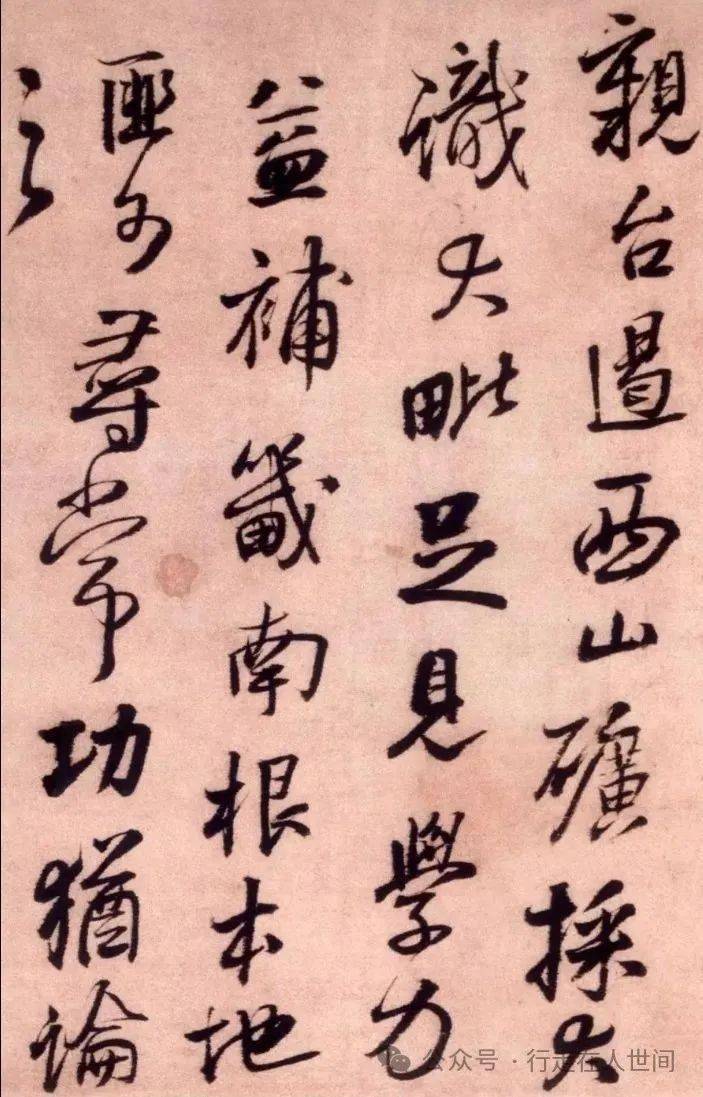 親台遏西山礦採大
識大毗足見學力
益補畿南根本地
匪可尋常功猶論
之
公众号 · 行走在人世间